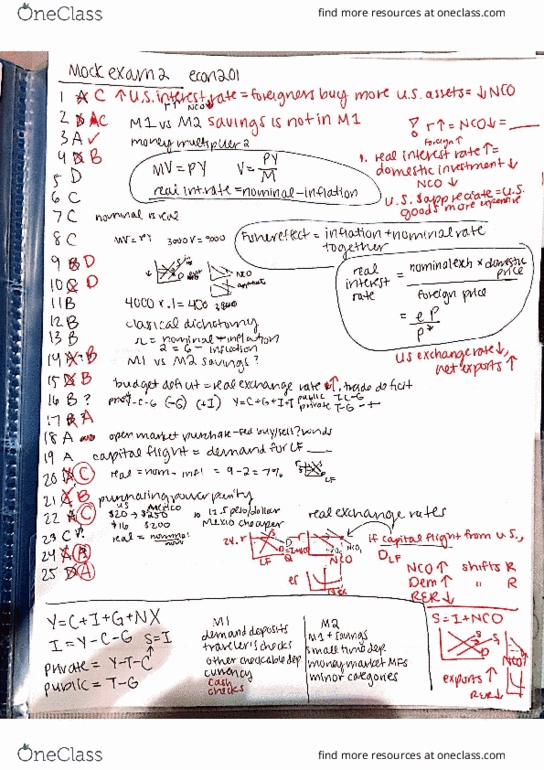 OneClass
find more resources at oneclass.com
Mock exam 2 econ201
1 A C ↑ U.S. interest rate = foreigners buy more U.S. assets = ↓ NCO
2 C M1 vs M2 savings is not in M1
3 A ✓ money multiplier 2
4 B
5 D
6 C
7 C nominal is real
8 C MV = PY 3000V = 9000
9 B D
10 D
11 B 4000 x .1 = 400 3800
12 B clasical dichotomy
13 B r = nominal - inflation
2 = 6 - inflation
14 B M1 vs M2 savings?
15 B budget deficit = real exchange rate ↑, trade deficit
16 B ? Y-C-G (-G) (+I) Y=C+G+I+
public
private T-G
17 A
18 A open market purchase - fed buy/sell? bonds
19 A capital flight = demand for LF __
20 C real = nom - infl = 9-2 = 7%
LF
21 B purchasing power parity
US Mexico
22 C $20 → $250 12.5 peso/dollar
$16 $200 Mexico cheaper
23 C real =
24
25 D A
MV = PY V = PY/M
real int. rate = nominal - inflation
r↑ = NCO↓ = ____
real interest rate ↑ =
domestic investment ↓
NCO ↓
U.S. $ appreciate = U.S.
goods more expensive
Fisher effect = inflation + nominal rate
together
real interest rate = nominal exch x domestic price / foreign price
= eP / P*
US exchange rate ↓,
net exports ↑
real exchange rates
if capital flight from U.S.,
D LF
NCO ↑ shifts R
Dem ↑ " R
RER ↓
LF Q NCO
er
Y=C+I+G+NX
I=Y-C-G S=I
private = Y-T-C
public = T-G
M1
demand deposits
traveler's checks
other checkable dep
currency
cash
checks
M2
M1 + savings
small time dep
money market MFs
minor categories
S=I+NCO
NCO
exports ↑
RER ↓
OneClass
find more resources at oneclass.com